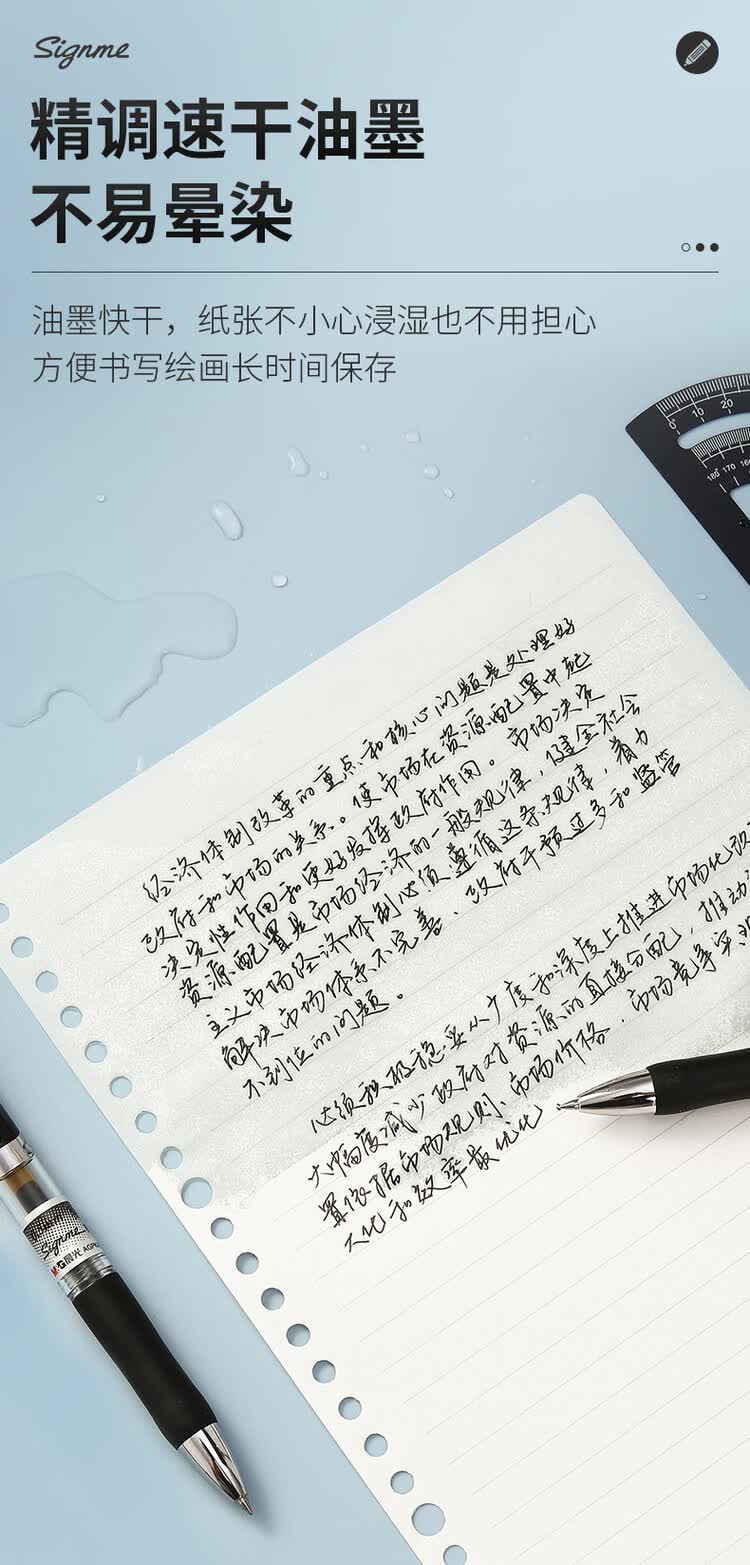 Signme
精调速干油墨
不易晕染
油墨快干，纸张不小心浸湿也不用担心
方便书写绘画长时间保存
0° 10 20
180° 170 160
经济体制改革的重点和核心问题是处理好
政府和市场的关系。使市场在资源配置中起
决定性作用和更好发挥政府作用。市场决定
资源配置是市场经济的一般规律，健全社会
主义市场经济体制必须遵循这条规律，着力
解决市场体系不完善、政府干预过多和监管
不到位的问题。
必须积极稳妥从广度和深度上推进市场化改
大幅度减少政府对资源的直接分配，推动
置依据市场规则、市场价格、市场竞争实现
大化和效率最优化
Signme
M&G晨光 AGP